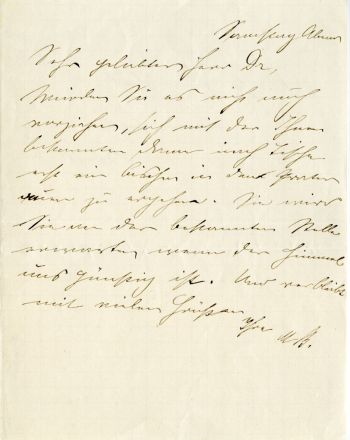 Samstag Abend
Sehr geliebter Herr Dr,
Würden Sie es nicht auch
vorziehen, sich mit der Ihnen
bekannten Dame nach Tische
erst ein bischen in den Prater
zu ergehen. Sie wird
Sie an der bekannten Stelle
erwarten wenn der Himmel
uns günstig ist. Und verbleibt
mit vielen Grüßen
Ihre